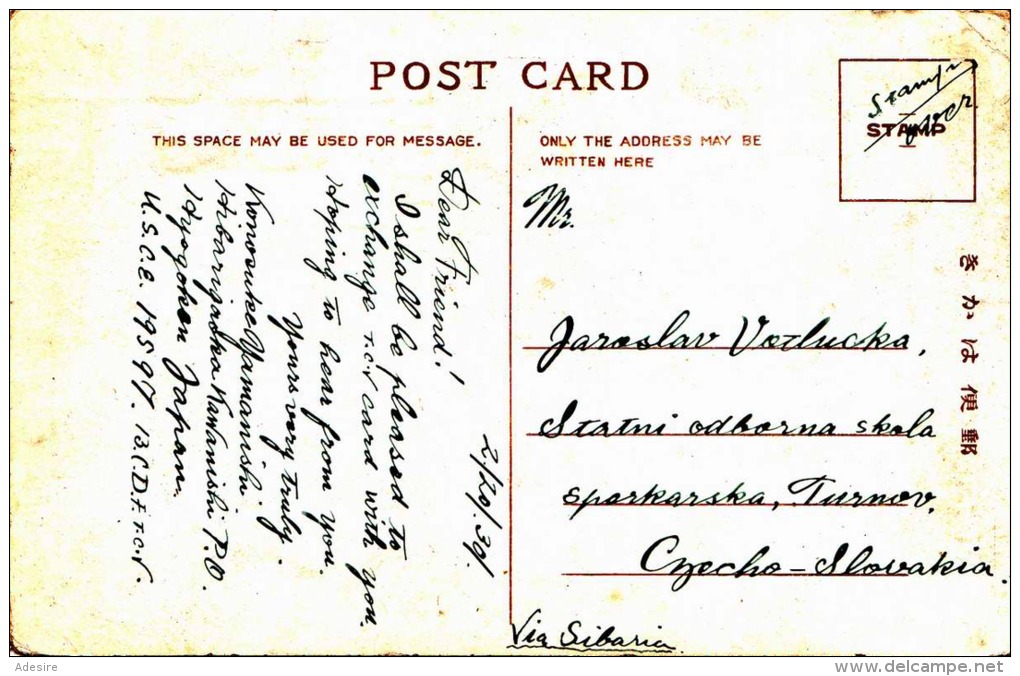 POST CARD
THIS SPACE MAY BE USED FOR MESSAGE.
ONLY THE ADDRESS MAY BE
WRITTEN HERE
STAMP
Stamps
over
きかは便郵
2/20/30/.
Dear Friend!
I shall be pleased to
exchange r.c.v card with you.
Hoping to hear from you.
Yours very truly.
Yamanishi.
Kawanishi P.O.
Hyogoken Japan.
U.S.C.E. 19597. I3.C.D.F. r.c.v.
Mr.
Jaroslav Votlucka,
Statni odborna skola
sperkarska, Turnov.
Czecho-Slovakia.
Via Sibaria.
Adesire
delcampe.net